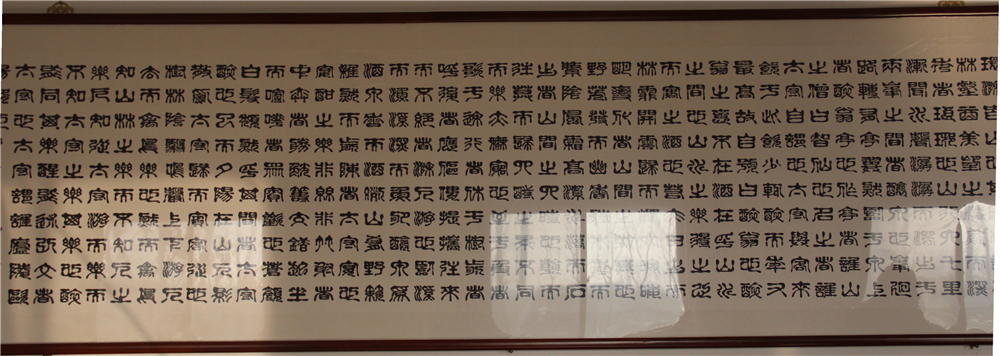 林壑尤美望之蔚然而深
秀者琅琊也山行六七里
漸聞水聲潺潺而瀉出于
兩峰之間者釀泉也峰回
路轉有亭翼然臨于泉上
者醉翁亭也作亭者誰山
之僧曰智仙也名之者誰
太守自謂也太守與客來
飲于此飲少輒醉而年又
最高故自號曰醉翁也醉
翁之意不在酒在乎山水
之間也山水之樂得之心
而寓之酒也若夫日出而
林霏開雲歸而巖穴暝晦
明變化者山間之朝暮也
野芳發而幽香佳木秀而
繁陰風霜高潔水落而石
出者山間之四時也朝而
往暮而歸四時之景不同
而樂亦無窮也至於負者
歌于途行者休于樹前者
呼後者應傴僂提攜往來
而不絕者滁人游也臨溪
而漁溪深而魚肥釀泉為
酒泉香而酒洌山肴野蔌
雜然而前陳者太守宴也
宴酣之樂非絲非竹射者
中弈者勝觥籌交錯起坐
而諠譁者眾賓歡也蒼顏
白髮頹然乎其間者太守
醉也已而夕陽在山人影
散亂太守歸而賓客從也
樹林陰翳鳴聲上下游人
去而禽鳥樂也然而禽鳥
知山林之樂而不知人之
樂人知從太守游而樂而
不知太守之樂其樂也醉
能同其樂醒能述以文者
太守也太守謂誰廬陵歐